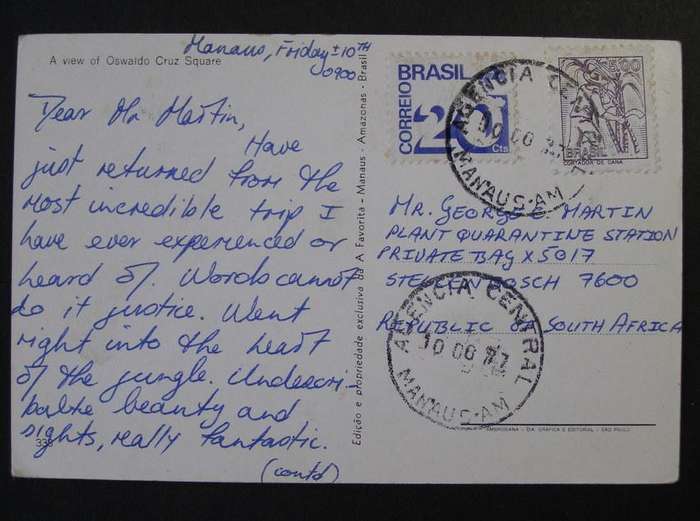 A view of Oswaldo Cruz Square
Manaus, Friday ±10TH
0900
Dear Mr Martin,
Have
just returned from the
most incredible trip I
have ever experienced or
heard of. Words cannot
do it justice. Went
right into the heart
of the jungle. Undescri-
bable beauty and
sights, really fantastic.
(contd)
Edição e propriedade exclusiva da A Favorita - Manaus - Amazonas - Brasil
CORREIO BRASIL
20 Cts
5,00
BRASIL
CORTADOR DE CANA
AGENCIA CENTRAL
MANAUS-AM
MR. GEORGE C. MARTIN
PLANT QUARANTINE STATION
PRIVATE BAG X5017
STELLENBOSCH 7600
REPUBLIC OF SOUTH AFRICA
AGENCIA CENTRAL
10 00 77
MANAUS-AM
AMBROSIANA - CIA. GRÁFICA E EDITORIAL - SÃO PAULO